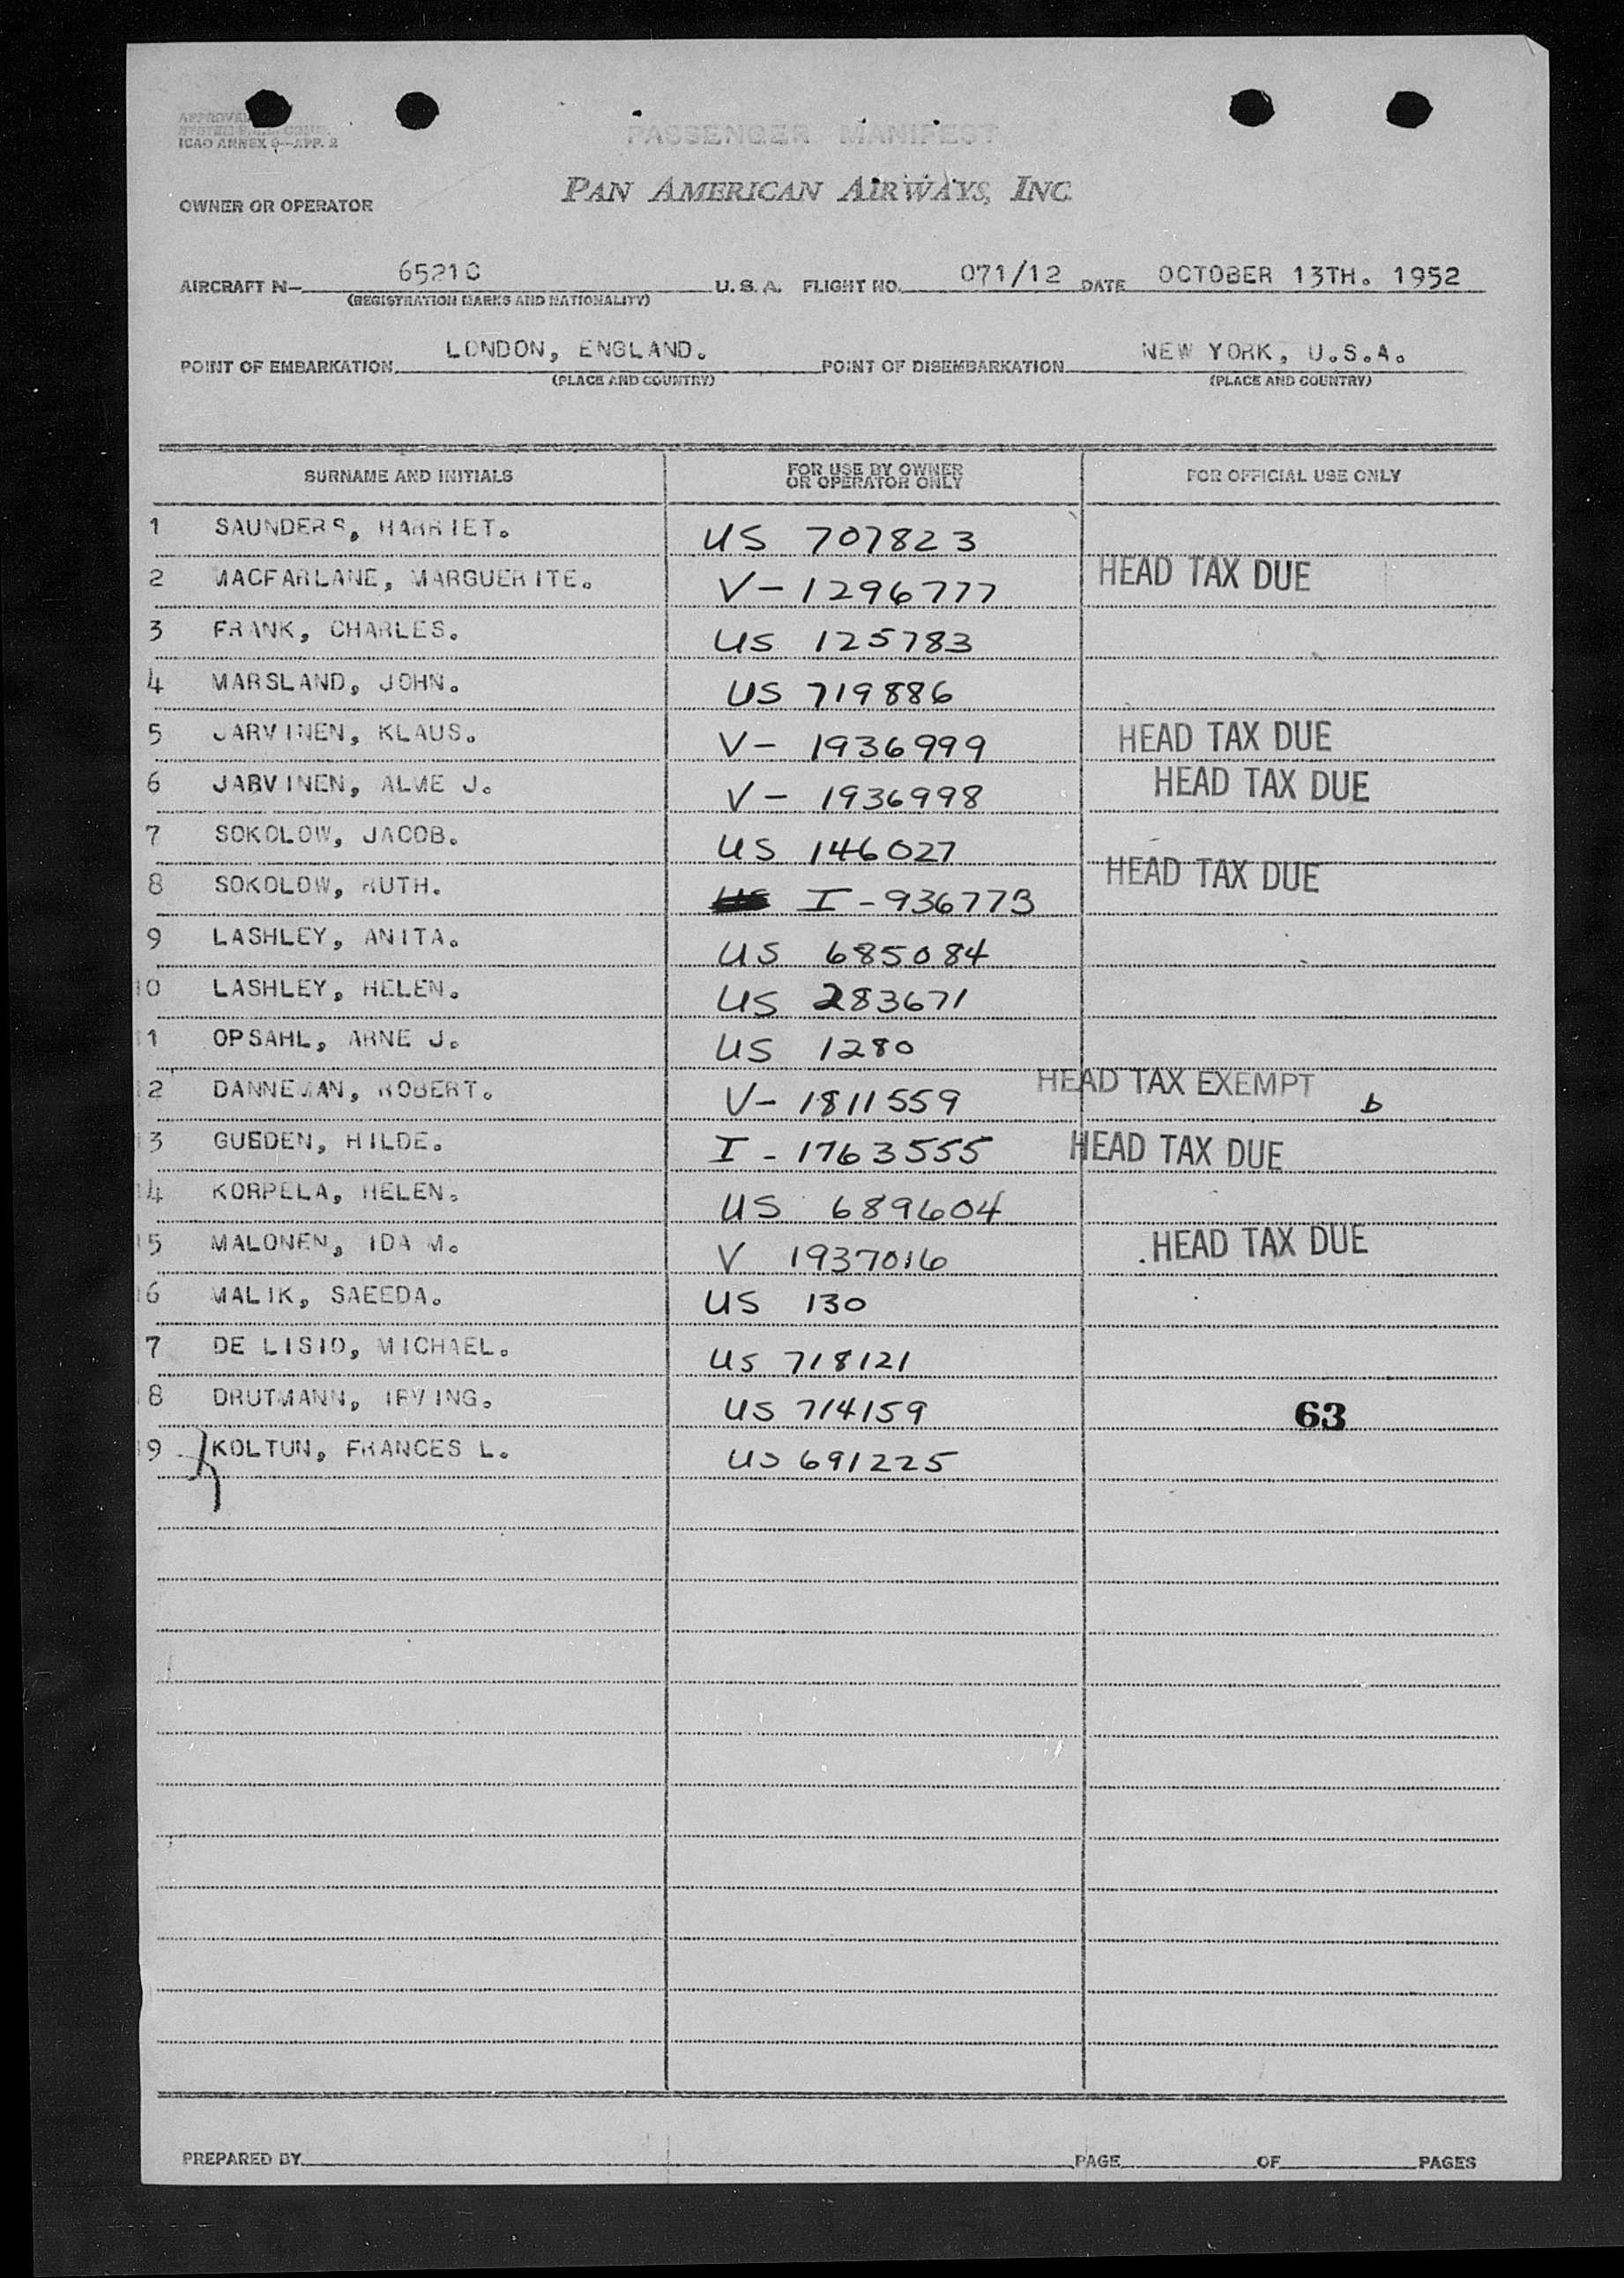 APPROVED
ICAO ANNEX 9—APP. 2
PASSENGER MANIFEST
PAN AMERICAN AIRWAYS, INC.
OWNER OR OPERATOR
AIRCRAFT N- 6521C U. S. A. FLIGHT NO. 071/12 DATE OCTOBER 13TH. 1952
(REGISTRATION MARKS AND NATIONALITY)
POINT OF EMBARKATION LONDON, ENGLAND. POINT OF DISEMBARKATION NEW YORK, U.S.A.
(PLACE AND COUNTRY) (PLACE AND COUNTRY)
SURNAME AND INITIALS FOR USE BY OWNER OR OPERATOR ONLY FOR OFFICIAL USE ONLY
1 SAUNDERS, HARRIET. US 707823
2 MACFARLANE, MARGUERITE. V-1296777 HEAD TAX DUE
3 FRANK, CHARLES. US 125783
4 MARSLAND, JOHN. US 719886
5 JARVINEN, KLAUS. V- 1936999 HEAD TAX DUE
6 JARVINEN, ALME J. V- 1936998 HEAD TAX DUE
7 SOKOLOW, JACOB. US 146027
8 SOKOLOW, RUTH. I-936773 HEAD TAX DUE
9 LASHLEY, ANITA. US 685084
10 LASHLEY, HELEN. US 283671
11 OPSAHL, ARNE J. US 1280
12 DANNEMAN, ROBERT. V-1811559 HEAD TAX EXEMPT b
13 GUEDEN, HILDE. I-1763555 HEAD TAX DUE
14 KORPELA, HELEN. US 689604
15 MALONEN, IDA M. V 1937016 HEAD TAX DUE
16 MALIK, SAEEDA. US 130
7 DE LISIO, MICHAEL. US 718121
18 DRUTMANN, IRVING. US 714159 63
19 KOLTUN, FRANCES L. US 691225
PREPARED BY PAGE OF PAGES